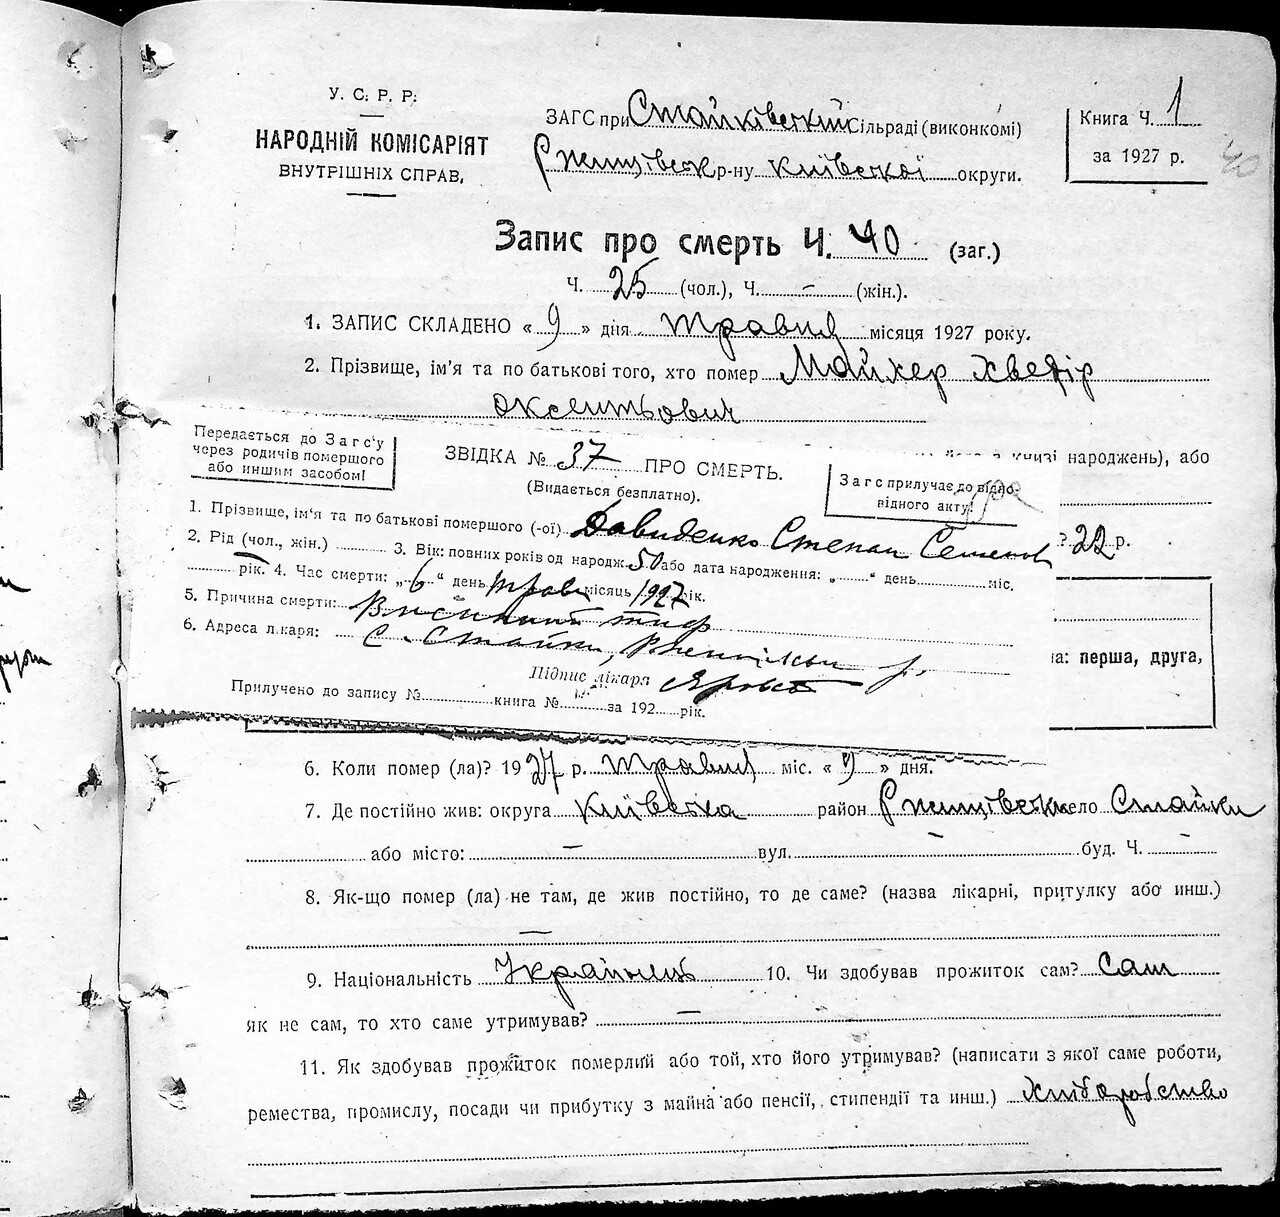 У. С. Р. Р.
НАРОДНІЙ КОМІСАРІЯТ
ВНУТРІШНІХ СПРАВ.
ЗАГС при Стайківській Сільраді (виконкомі)
Ржищівськ р-ну Київської округи.
Книга Ч. 1
за 1927 р.
40
Запис про смерть Ч. 40 (заг.)
Ч. 25 (чол.), Ч. – (жін.).
1. ЗАПИС СКЛАДЕНО « 9 » дня травня місяця 1927 року.
2. Прізвище, ім'я та по батькові того, хто помер Майхер Хведір
Оксентьович
книзі народжень), або
? 22 р.
на: перша, друга,
Передається до Загс'у
через родичів помершого
або иншим засобом!
ЗВІДКА № 37 ПРО СМЕРТЬ.
(Видається безплатно).
Загс прилучає до відпо-
відного акту!
1. Прізвище, ім'я та по батькові помершого (-ої) Давиденко Степан Семенов
2. Рід (чол., жін.) 3. Вік: повних років од народж. 50 або дата народження: „ “ день міс.
рік. 4. Час смерти: „ 6 “ день трав місяць 1927 рік.
5. Причина смерти: Висипний тиф
6. Адреса лікаря: С. Стайки, р.
Підпис лікаря
Прилучено до запису № книга № за 192 рік.
6. Коли помер (ла)? 1927 р. травня міс. « 9 » дня.
7. Де постійно жив: округа Київська район Ржищівськ село Стайки
або місто: – вул. – буд. Ч. –
8. Як-що помер (ла) не там, де жив постійно, то де саме? (назва лікарні, притулку або инш.)
–
9. Національність Українець 10. Чи здобував прожиток сам? Сам
як не сам, то хто саме утримував? –
11. Як здобував прожиток померлий або той, хто його утримував? (написати з якої саме роботи,
ремества, промислу, посади чи прибутку з майна або пенсії, стипендії та инш.) Хліборобство